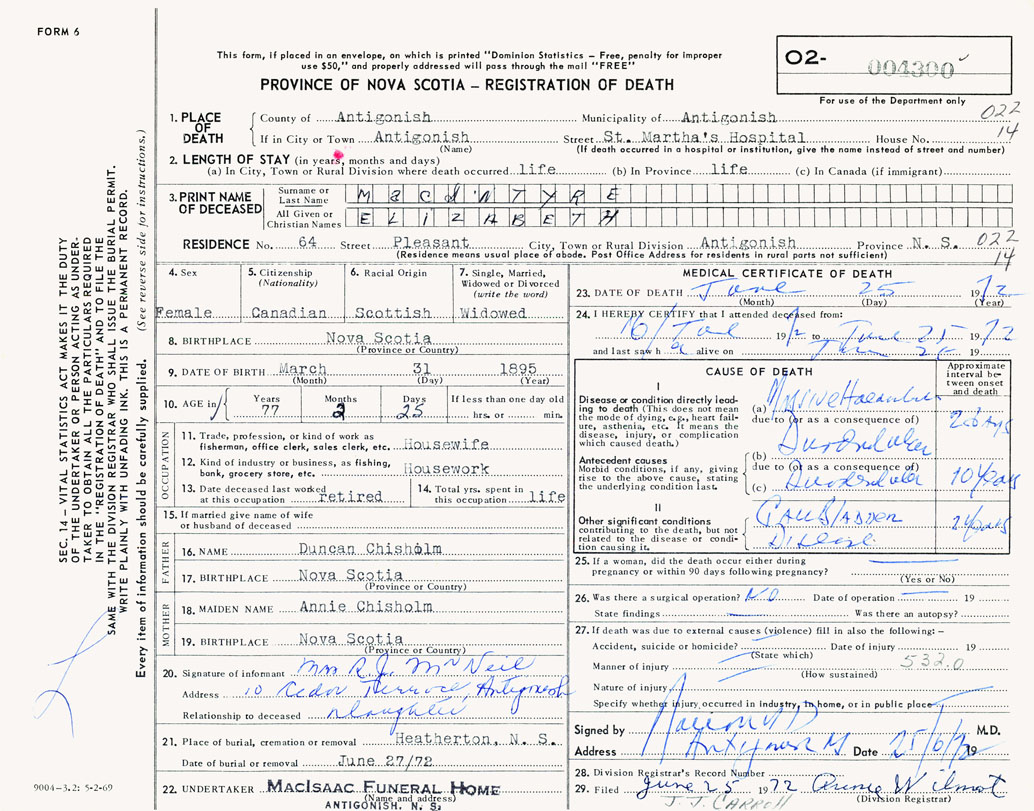 FORM 6
This form, if placed in an envelope, on which is printed "Dominion Statistics – Free, penalty for improper
use $50," and properly addressed will pass through the mail "FREE"
PROVINCE OF NOVA SCOTIA – REGISTRATION OF DEATH
O2- 004300
For use of the Department only
022
14
1. PLACE OF DEATH
County of Antigonish Municipality of Antigonish
If in City or Town Antigonish Street St. Martha's Hospital House No.
(Name) (If death occurred in a hospital or institution, give the name instead of street and number)
2. LENGTH OF STAY (in years, months and days)
(a) In City, Town or Rural Division where death occurred life (b) In Province life (c) In Canada (if immigrant)
3. PRINT NAME OF DECEASED
Surname or Last Name MacINTYRE
All Given or Christian Names ELIZABETH
RESIDENCE No. 64 Street Pleasant City, Town or Rural Division Antigonish Province N. S. 022
(Residence means usual place of abode. Post Office Address for residents in rural parts not sufficient) 14
4. Sex
Female
5. Citizenship
(Nationality)
Canadian
6. Racial Origin
Scottish
7. Single, Married,
Widowed or Divorced
(write the word)
Widowed
8. BIRTHPLACE Nova Scotia
(Province or Country)
9. DATE OF BIRTH March 31 1895
(Month) (Day) (Year)
10. AGE in
Years Months Days If less than one day old
77 2 25 hrs. or min.
OCCUPATION
11. Trade, profession, or kind of work as
fisherman, office clerk, sales clerk, etc. Housewife
12. Kind of industry or business, as fishing,
bank, grocery store, etc. Housework
13. Date deceased last worked
at this occupation retired
14. Total yrs. spent in
this occupation life
15. If married give name of wife
or husband of deceased
FATHER
16. NAME Duncan Chisholm
17. BIRTHPLACE Nova Scotia
(Province or Country)
MOTHER
18. MAIDEN NAME Annie Chisholm
19. BIRTHPLACE Nova Scotia
(Province or Country)
20. Signature of informant Mrs R.J. McNeil
Address 10 Cedar Terrace, Antigonish
Relationship to deceased Daughter
21. Place of burial, cremation or removal Heatherton, N. S.
Date of burial or removal June 27/72
22. UNDERTAKER MacISAAC FUNERAL HOME
(Name and address)
ANTIGONISH, N. S.
MEDICAL CERTIFICATE OF DEATH
23. DATE OF DEATH June 25 1972
(Month) (Day) (Year)
24. I HEREBY CERTIFY that I attended deceased from:
16/June 1972 to June 25 1972
and last saw her alive on June 25 19
CAUSE OF DEATH
Approximate
interval be-
tween onset
and death
I
Disease or condition directly lead-
ing to death (This does not mean
the mode of dying, e.g., heart fail-
ure, asthenia, etc. It means the
disease, injury, or complication
which caused death.)
(a) Massive
due to (or as a consequence of)
Duodenal ulcer
Antecedent causes
Morbid conditions, if any, giving
rise to the above cause, stating
the underlying condition last.
(b)
due to (or as a consequence of)
(c) Duodenal ulcer 10 years
II
Other significant conditions
contributing to the death, but not
related to the disease or condi-
tion causing it.
GALL BLADDER
Disease years
25. If a woman, did the death occur either during
pregnancy or within 90 days following pregnancy?
(Yes or No)
26. Was there a surgical operation? NO Date of operation 19
State findings Was there an autopsy?
27. If death was due to external causes (violence) fill in also the following: –
Accident, suicide or homicide? Date of injury 19
(State which)
Manner of injury 532.0
(How sustained)
Nature of injury
Specify whether injury occurred in industry, in home, or in public place
Signed by M.D.
Address Antigonish Date 25/6/72 19
28. Division Registrar's Record Number
29. Filed June 25 1972 Wilmot
(Division Registrar)
J. J. CARROLL
SEC. 14 – VITAL STATISTICS ACT MAKES IT THE DUTY
OF THE UNDERTAKER OR PERSON ACTING AS UNDER-
TAKER TO OBTAIN ALL THE PARTICULARS REQUIRED
IN THE "REGISTRATION OF DEATH" AND TO FILE THE
SAME WITH THE DIVISION REGISTRAR WHO SHALL ISSUE THE BURIAL PERMIT.
WRITE PLAINLY WITH UNFADING INK. THIS IS A PERMANENT RECORD.
Every item of information should be carefully supplied. (See reverse side for instructions.)
9004-3.2: 5-2-69